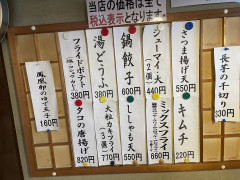 当店の価格は全て
税込表示となります。
長芋の千切り
330円
さつま揚げ天
550円
キムチ
220円
シューマイ・大
(2個)
440円
ミックスフライ
660円
鍋餃子
600円
ししゃも天
550円
湯どうふ
380円
大粒カキフライ
(3個)
770円
フライドポテト
380円
タコの唐揚げ
820円
160円